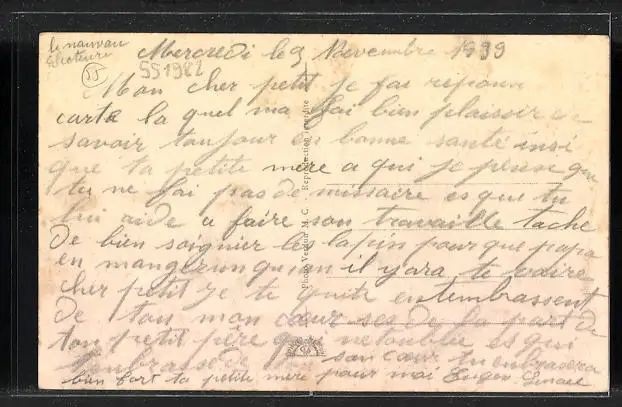 le nauvau
secteure
55
Mercredi le 9 Novembre 1939
551982
Mon cher petit je fai repouns
carte la quel ma fai bien plaissir de
savoir toujour en bonne santé insi
que ta petite mere a qui je pense que
tu ne fai pas de missaire es que tu
lui aide a faire son travaille tache
de bien soignier les lapin pour que papa
en mange quan il yara te voire
cher petit je te quite en tembrassent
de tou mon cœur ses de la part de
ton petit père qui ne toublie es qui
tembrasse de son cœur tu enbrasera
bien fort ta petite mere pour moi Euger
Photo Verdun M. C. Reproduction interdite